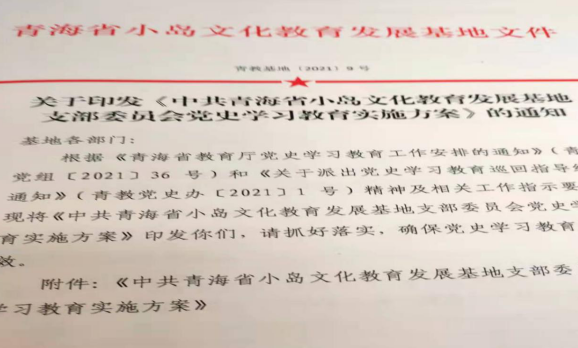 青海省小岛文化教育发展基地文件
青教基地〔2021〕9号
关于印发《中共青海省小岛文化教育发展基地
支部委员会党史学习教育实施方案》的通知
基地各部门：
根据《青海省教育厅党史学习教育工作安排的通知》（青
党组〔2021〕36 号）和《关于派出党史学习教育巡回指导组
通知》（青教党史办〔2021〕1 号）精神及相关工作指示要
现将《中共青海省小岛文化教育发展基地支部委员会党史学
育实施方案》印发你们，请抓好落实，确保党史学习教育
效。
附件：《中共青海省小岛文化教育发展基地支部委
学习教育实施方案》